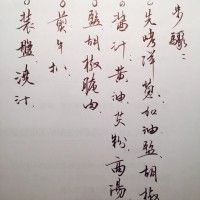 步驟：
○先烤洋葱和油鹽胡椒
○醬汁：黃油、芡粉、高湯
○鹽胡椒腌肉
○煎牛扒
○裝盤、澆汁.